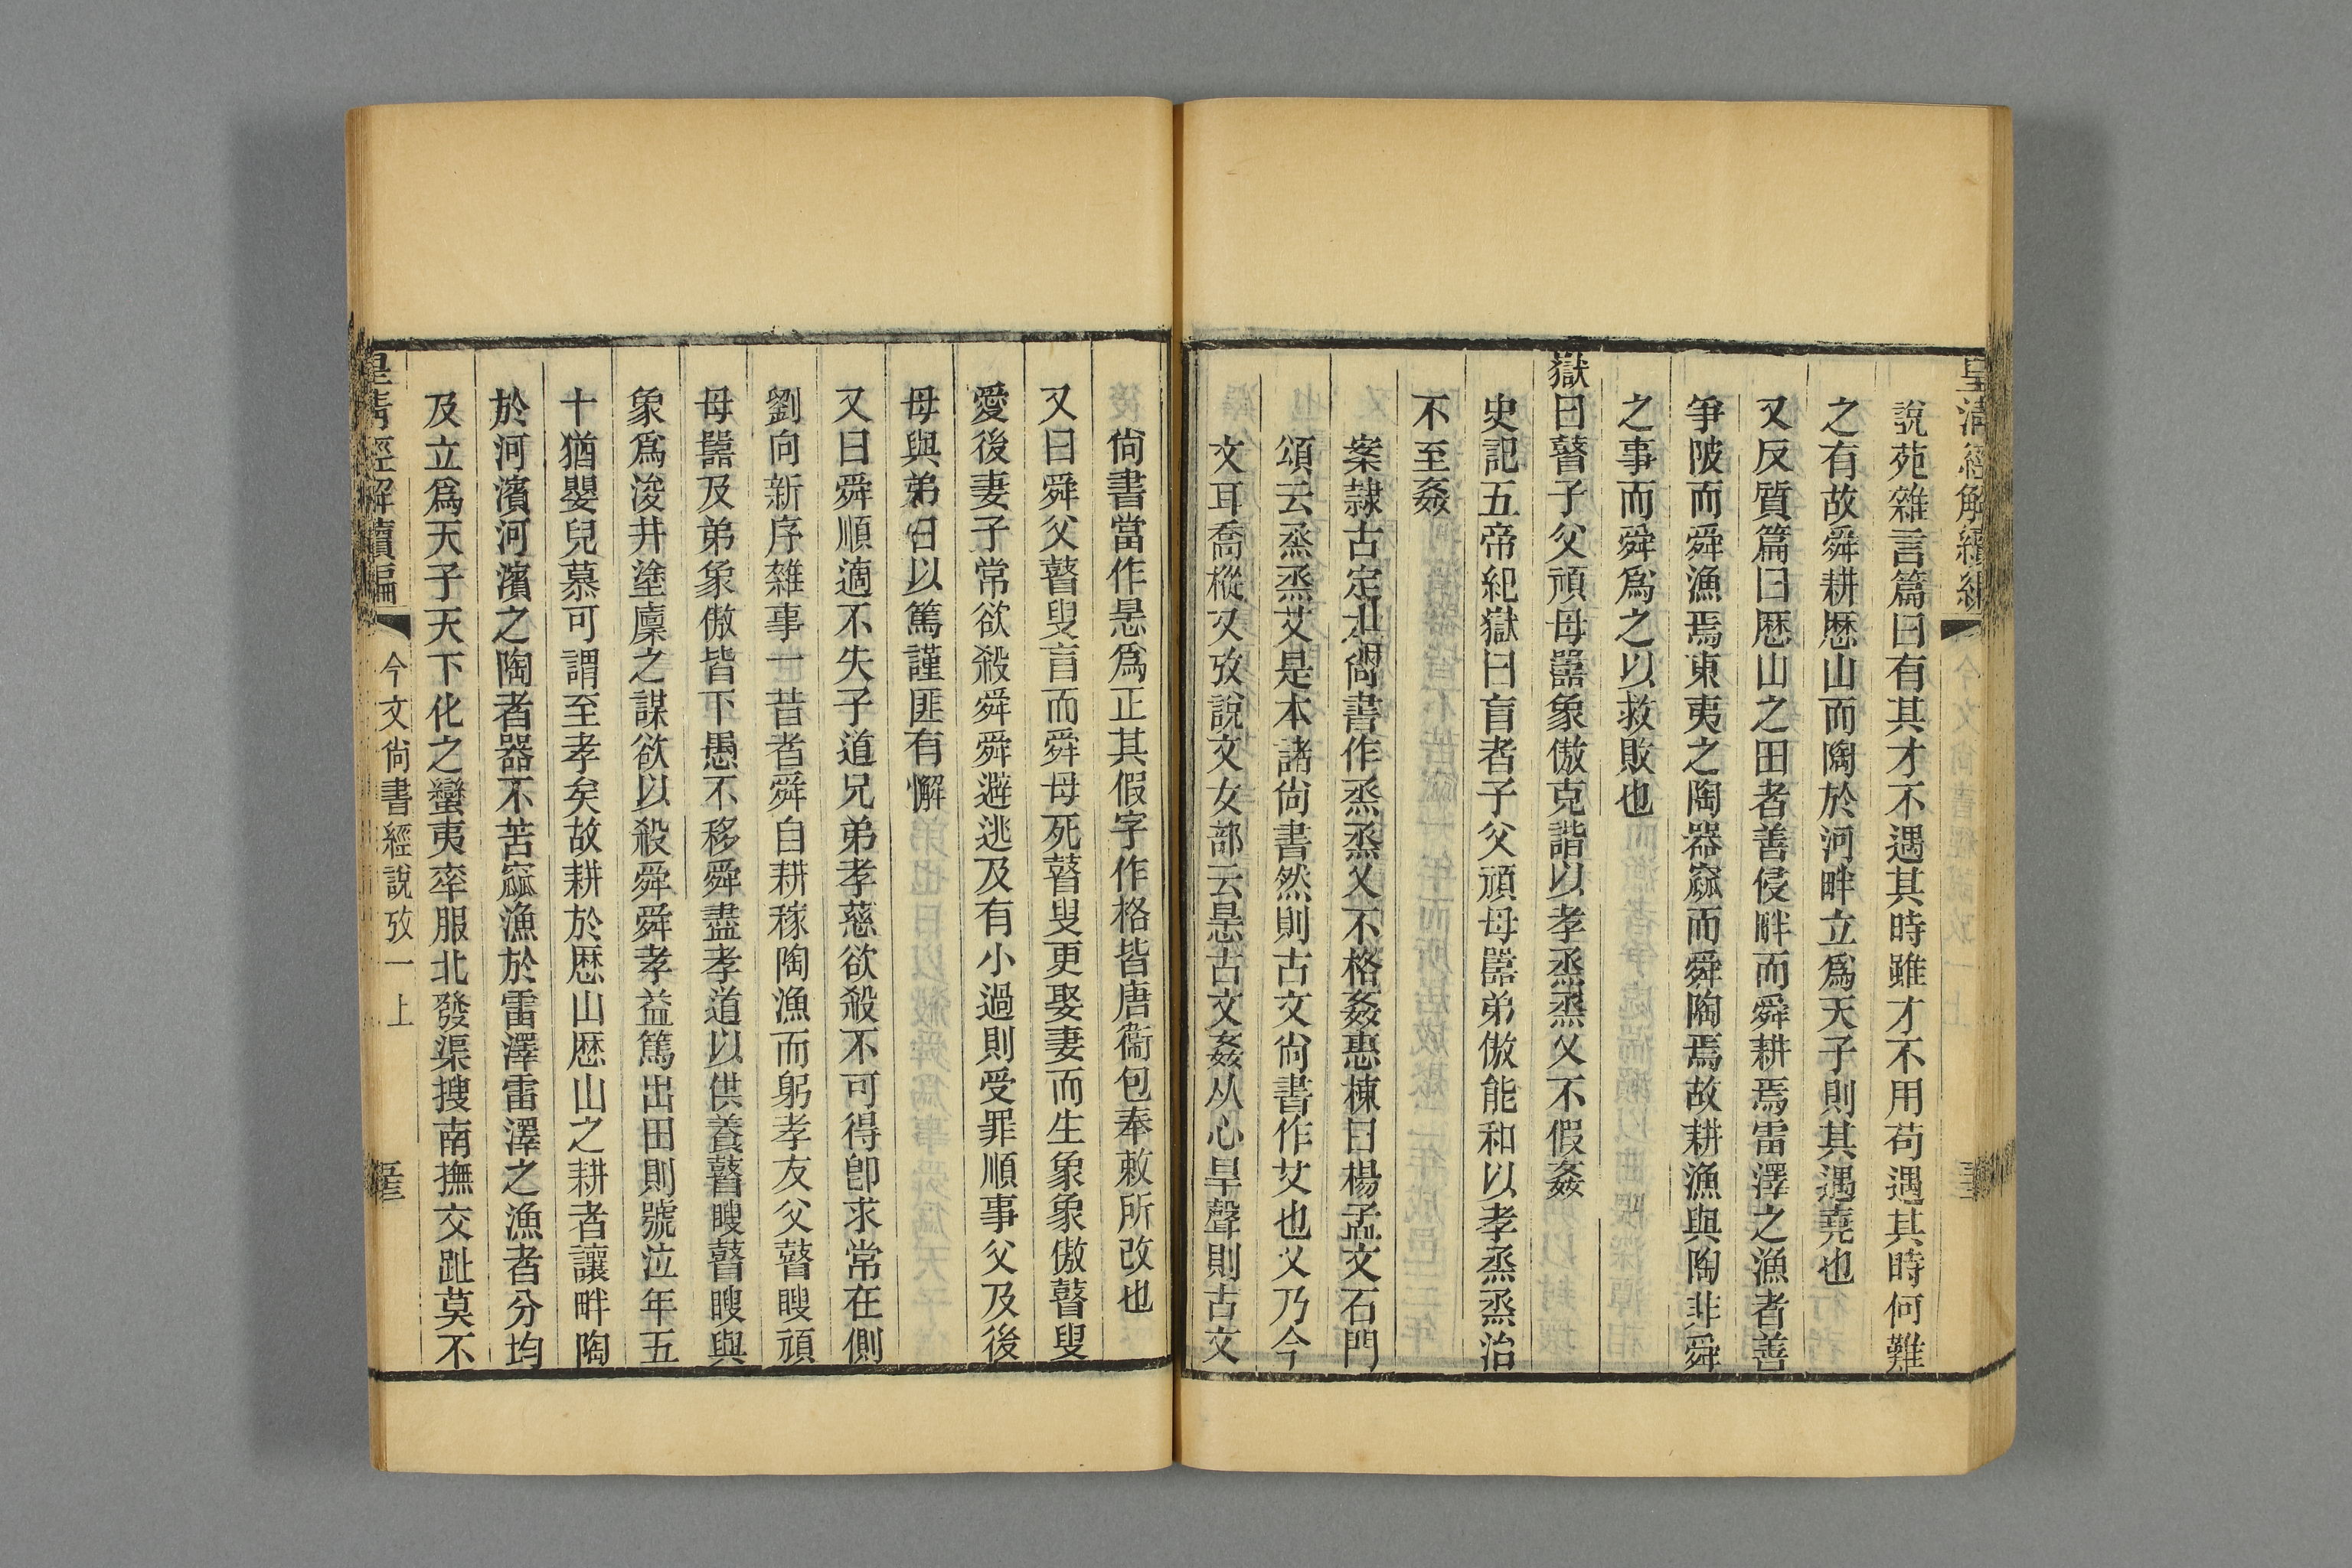 皇清經解續編
說苑雜言篇曰有其才不遇其時雖才不用苟遇其時何難
之有故舜耕歷山而陶於河畔立爲天子則其遇堯也
又反質篇曰歷山之田者善侵畔而舜耕焉雷澤之漁者善
爭陂而舜漁焉東夷之陶器窳而舜陶焉故耕漁與陶非舜
之事而舜爲之以救敗也
嶽曰瞽子父頑母嚚象傲克諧以孝烝烝乂不假姦
史記五帝紀嶽曰盲者子父頑母嚚弟傲能和以孝烝烝治
不至姦
案隷古定本尙書作烝烝乂不格姦惠棟曰楊孟文石門
頌云烝烝艾是本諸尙書然則古文尙書作艾也乂乃今
文耳喬樅又攷說文女部云悬古文姦从心旱聲則古文
尙書當作悬爲正其假字作格皆唐衞包奉敕所改也
又曰舜父瞽叟盲而舜母死瞽叟更娶妻而生象象傲瞽叟
愛後妻子常欲殺舜舜避逃及有小過則受罪順事父及後
母與弟日以篤謹匪有懈
又曰舜順適不失子道兄弟孝慈欲殺不可得卽求常在側
劉向新序雜事一昔者舜自耕稼陶漁而躬孝友父瞽瞍頑
母嚚及弟象傲皆下愚不移舜盡孝道以供養瞽瞍瞽瞍與
象爲浚井塗廩之謀欲以殺舜舜孝益篤出田則號泣年五
十猶嬰兒慕可謂至孝矣故耕於歷山歷山之耕者讓畔陶
於河濱河濱之陶者器不苦窳漁於雷澤雷澤之漁者分均
及立爲天子天下化之蠻夷率服北發渠搜南撫交趾莫不
皇清經解續編
今文尙書經說攷一上